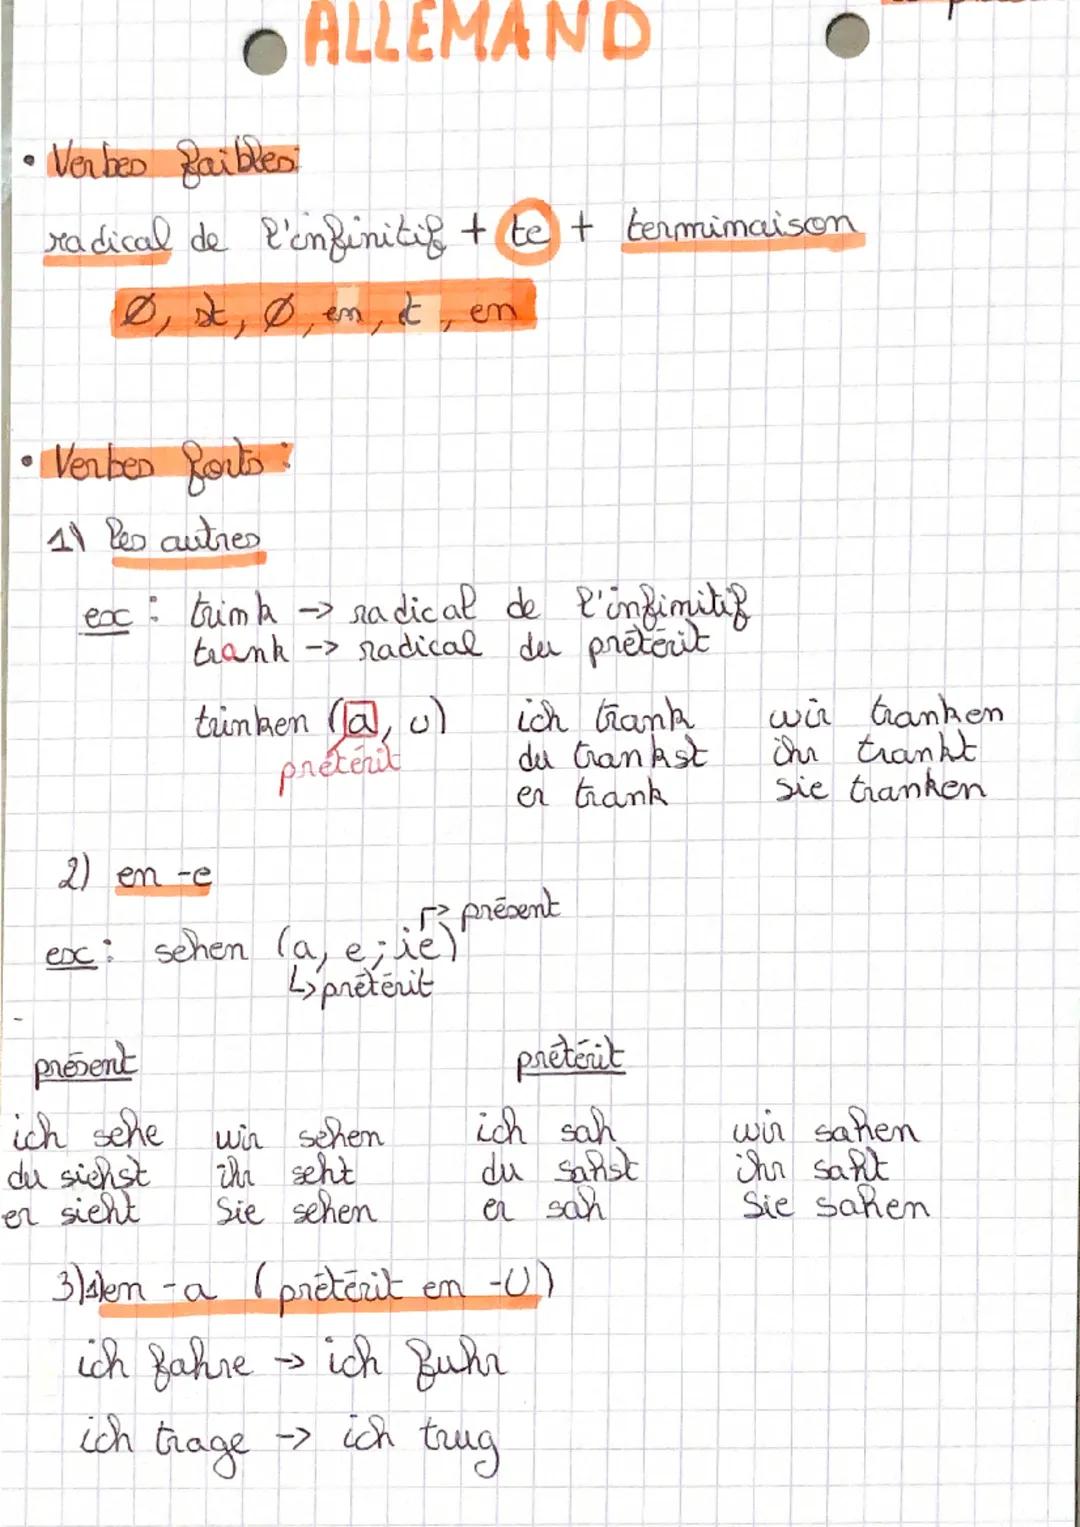 ALLEMAND
• Verbes faibles:
radical de l'infinitif + te + terminaison
Ø, st, Ø, en, t, en
• Verbes forts :
1) les autres
ex : trink -> radical de l'infinitif
trank -> radical du prétérit
trinken (a, u) ich trank wir tranken
prétérit du trankst ihr trankt
er trank sie tranken
2) en -e
-> présent
ex : sehen (a, e; ie)
-> prétérit
présent prétérit
ich sehe wir sehen ich sah wir sahen
du siehst ihr seht du sahst ihr saht
er sieht Sie sehen er sah Sie sahen
3) 1) en -a (prétérit en -U)
ich fahre -> ich fuhr
ich trage -> ich trug